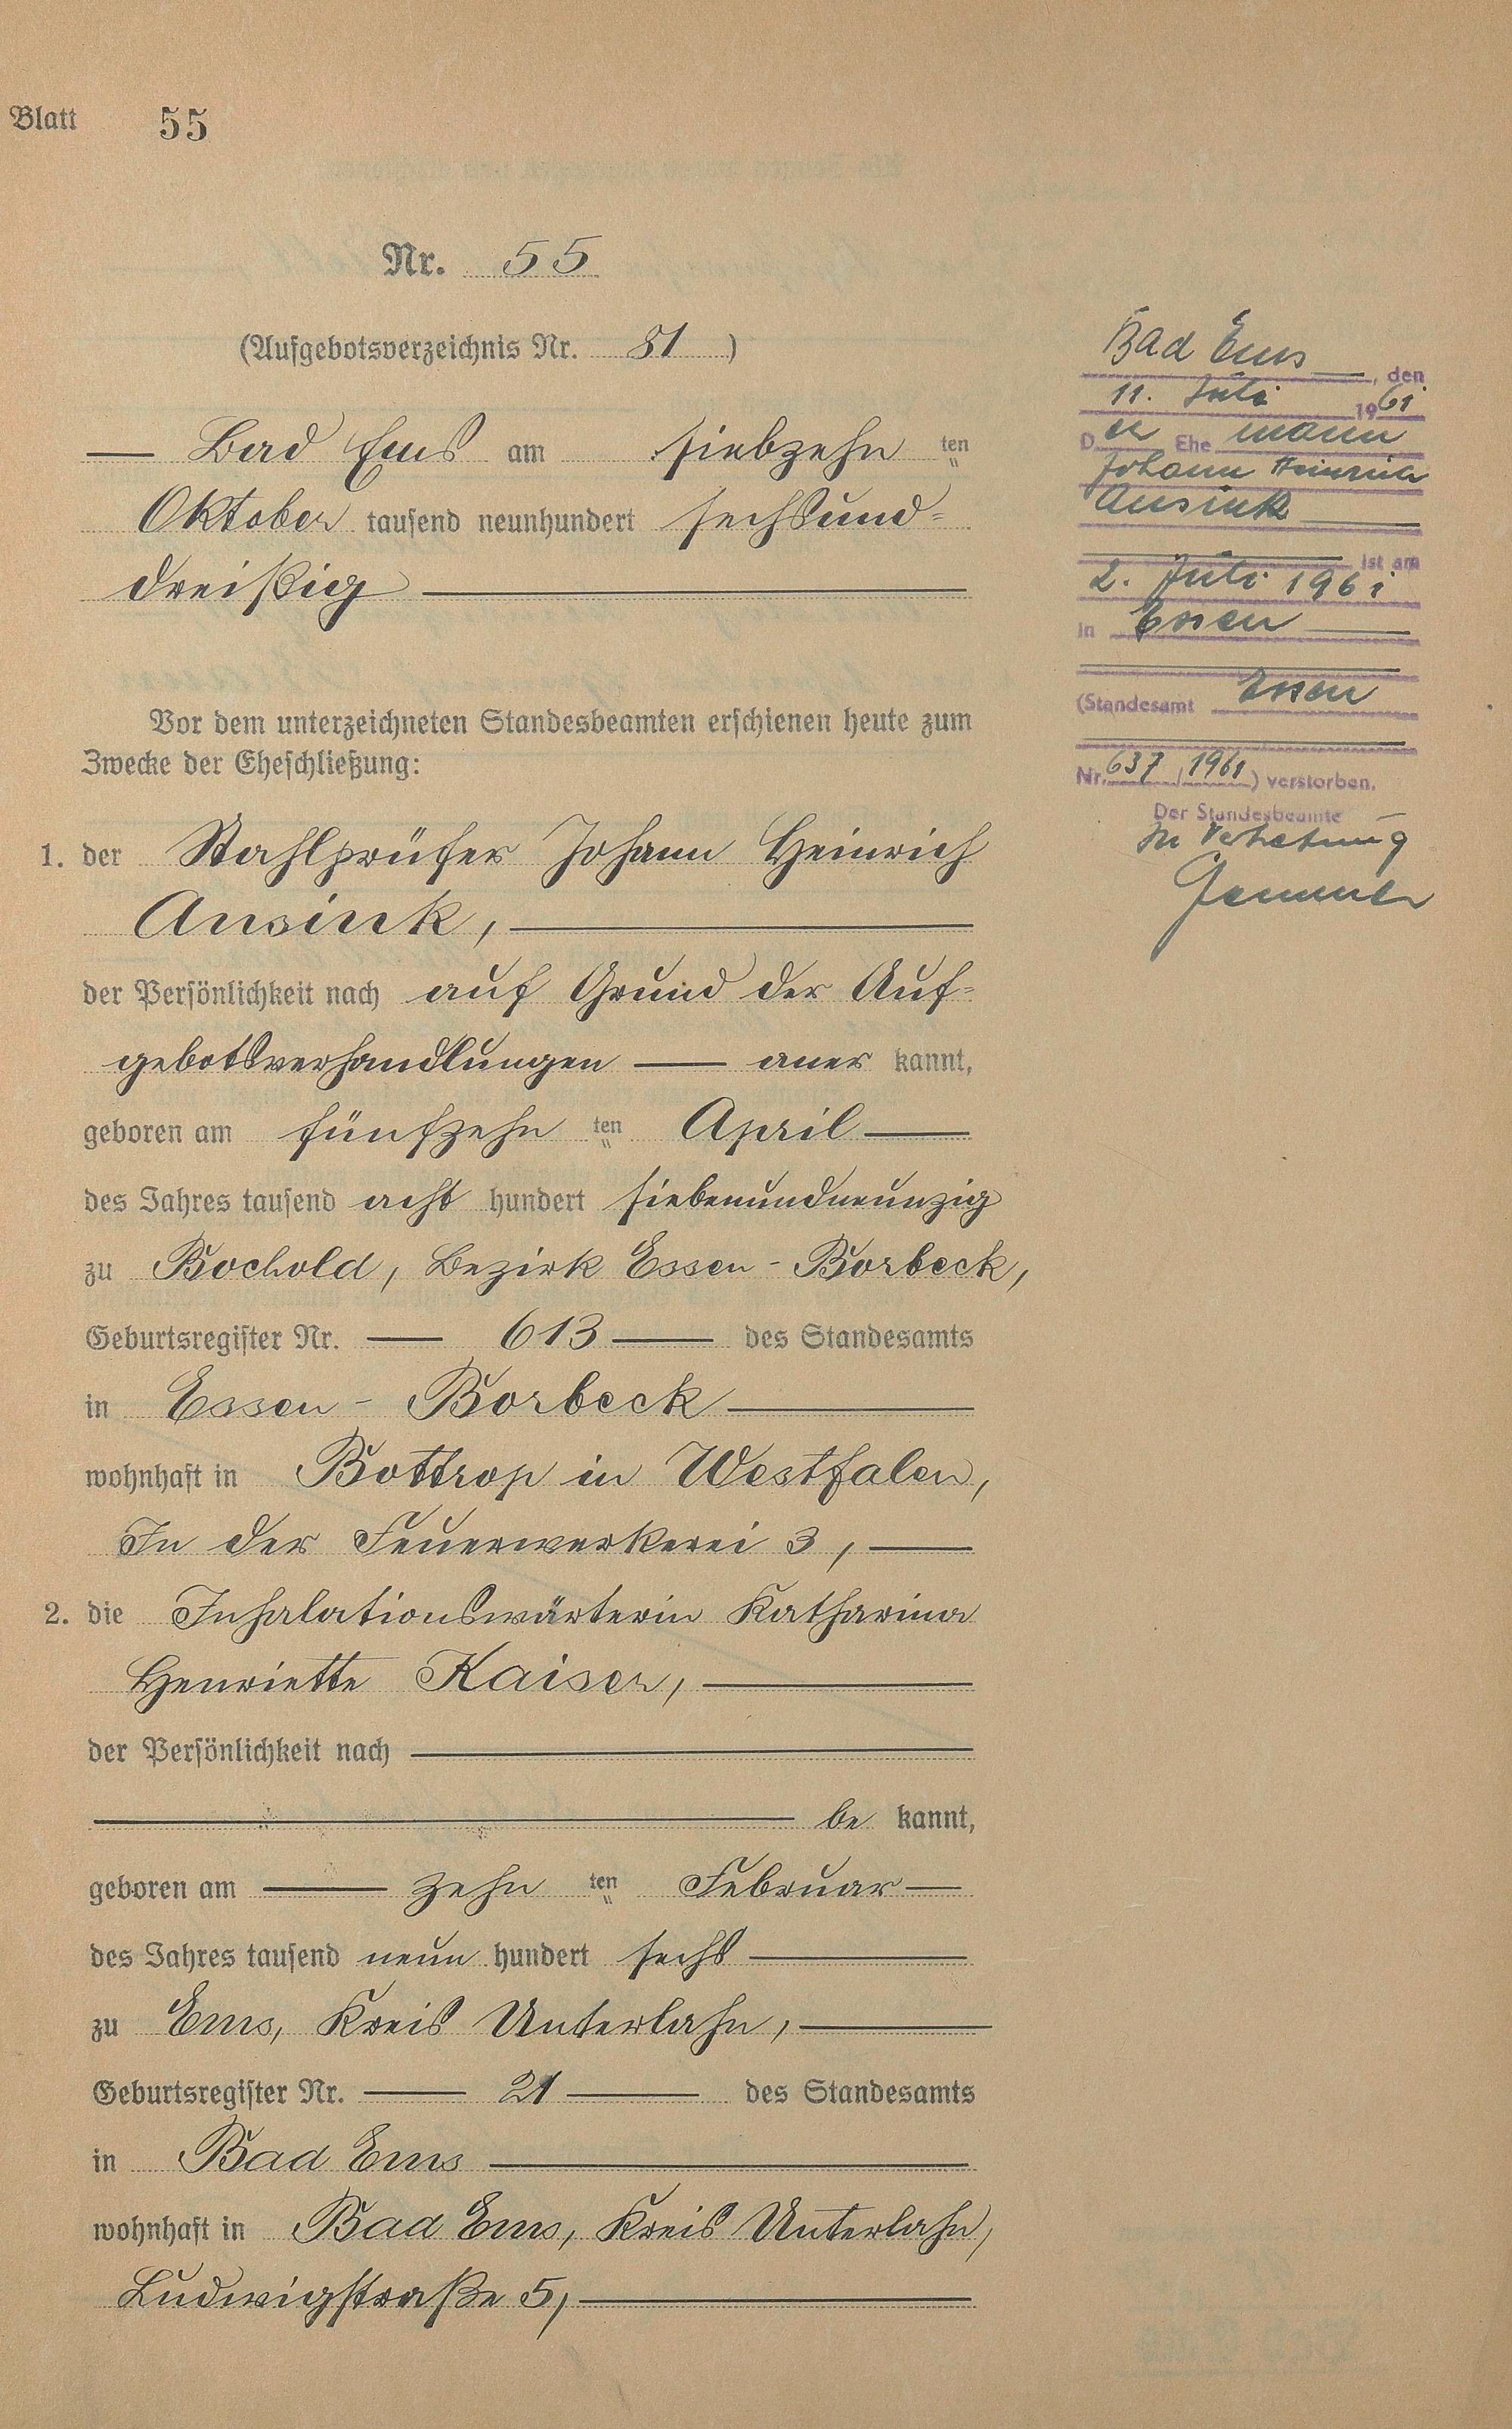 Blatt 55
Nr. 55
(Aufgebotsverzeichnis Nr. 81 )
— Bad Ems am siebzehn ten
Oktober tausend neunhundert sechsund=
dreißig —
Vor dem unterzeichneten Standesbeamten erschienen heute zum
Zwecke der Eheschließung:
1. der Stahlprüfer Johann Heinrich
Ansink, —
der Persönlichkeit nach auf Grund der Auf=
gebotsverhandlungen — aner kannt,
geboren am fünfzehn ten April —
des Jahres tausend acht hundert siebenundneunzig
zu Bochold, Bezirk Essen - Borbeck,
Geburtsregister Nr. — 613 — des Standesamts
in Essen - Borbeck —
wohnhaft in Bottrop in Westfalen,
In der Feuerwerkerei 3, —
2. die Inhalationswärterin Katharina
Henriette Kaiser, —
der Persönlichkeit nach —
— be kannt,
geboren am — zehn ten Februar —
des Jahres tausend neun hundert sechs —
zu Ems, Kreis Unterlahn, —
Geburtsregister Nr. — 21 — des Standesamts
in Bad Ems —
wohnhaft in Bad Ems, Kreis Unterlahn,
Ludwigstraße 5, —
Bad Ems —, den
11. Juli 1961
Der Ehe mann
Johann Heinrich
Ansink —
— ist am
2. Juli 1961
in Essen —
(Standesamt Essen
Nr. 637 / 1961 ) verstorben.
Der Standesbeamte
In Vertretung